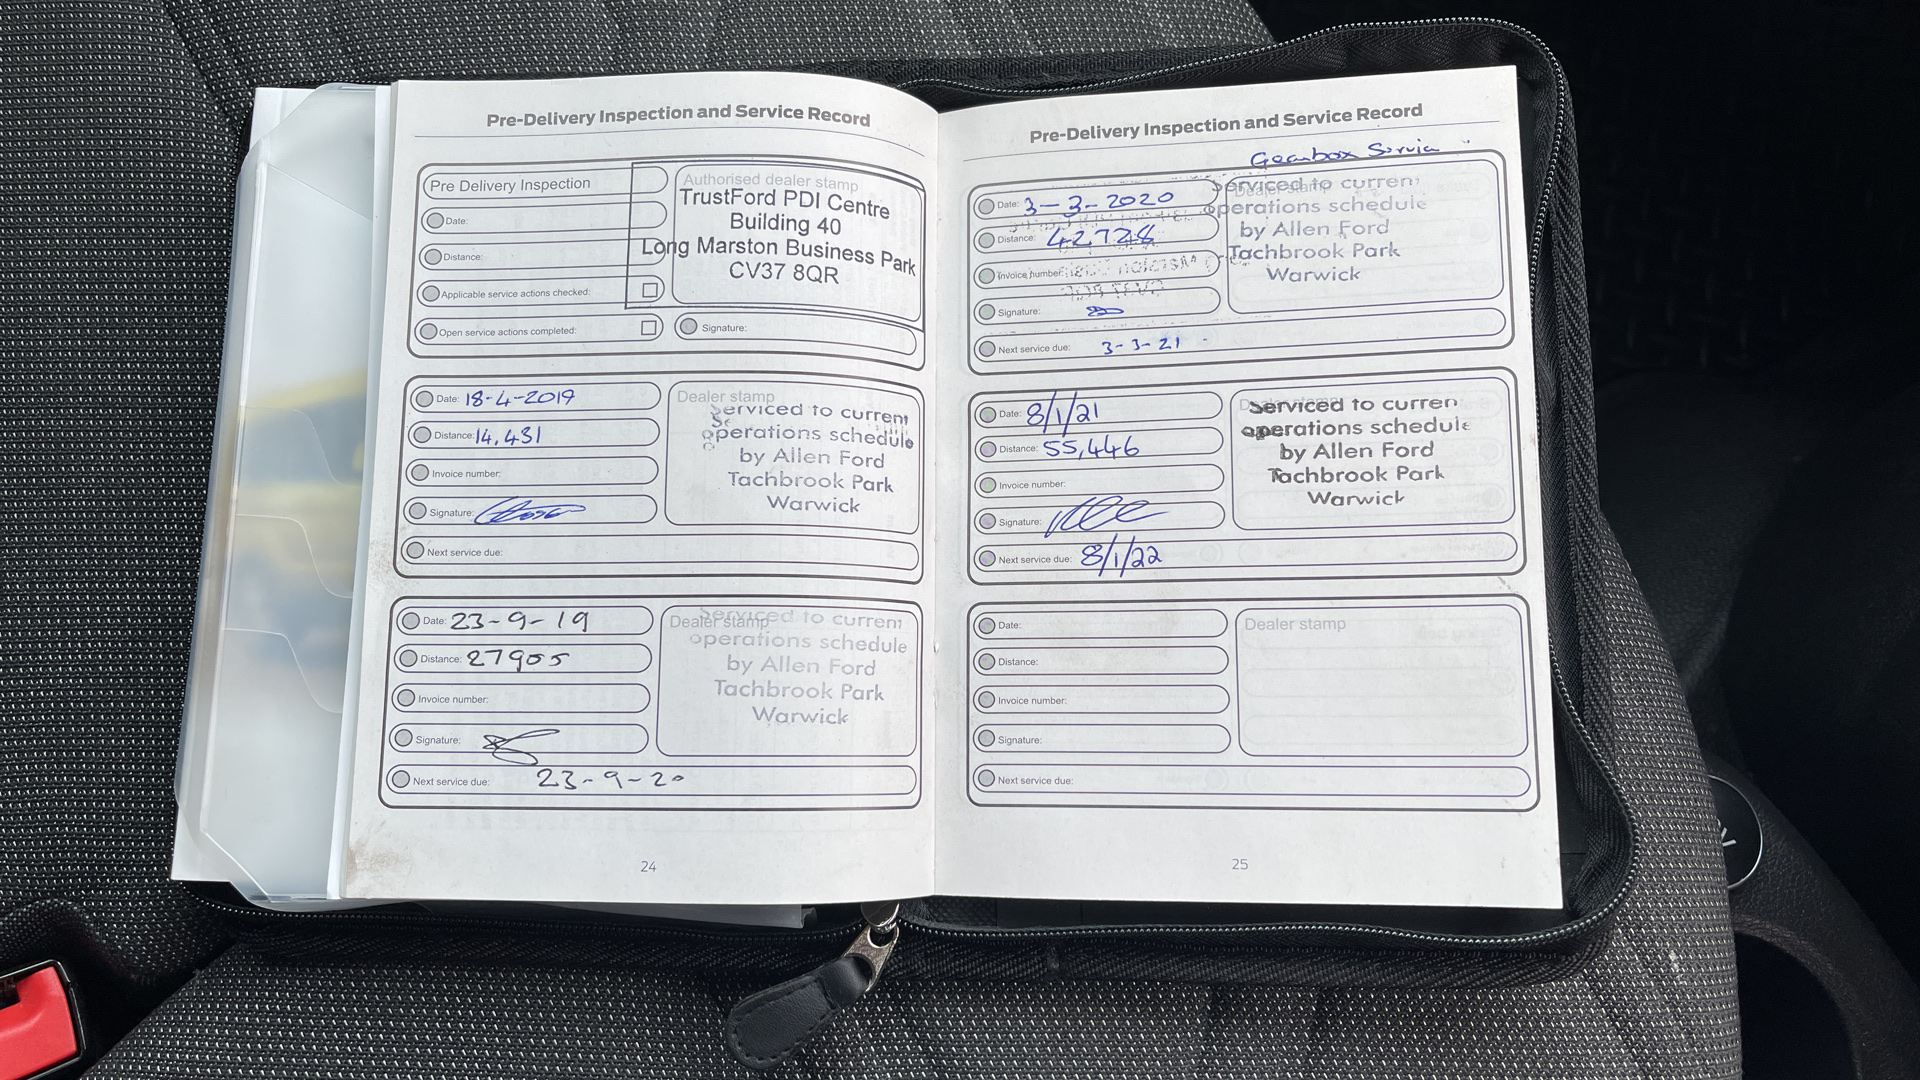 Pre-Delivery Inspection and Service Record
Pre Delivery Inspection
Date:
Distance:
Applicable service actions checked:
Open service actions completed:
Authorised dealer stamp
TrustFord PDI Centre
Building 40
Long Marston Business Park
CV37 8QR
Signature:
Date: 18-4-2019
Distance: 14,431
Invoice number:
Signature:
Next service due:
Dealer stamp
Serviced to current
operations schedule
by Allen Ford
Tachbrook Park
Warwick
Date: 23-9-19
Distance: 27905
Invoice number:
Signature:
Next service due: 23-9-20
Dealer stamp
Serviced to current
operations schedule
by Allen Ford
Tachbrook Park
Warwick
24
Pre-Delivery Inspection and Service Record
Gearbox Service
Date: 3-3-2020
Distance: 42728
Invoice number:
Signature:
Next service due: 3-3-21
Dealer stamp
Serviced to current
operations schedule
by Allen Ford
Tachbrook Park
Warwick
Date: 8/1/21
Distance: 55,446
Invoice number:
Signature:
Next service due: 8/1/22
Serviced to curren
operations schedule
by Allen Ford
Tachbrook Park
Warwick
Date:
Distance:
Invoice number:
Signature:
Next service due:
Dealer stamp
25